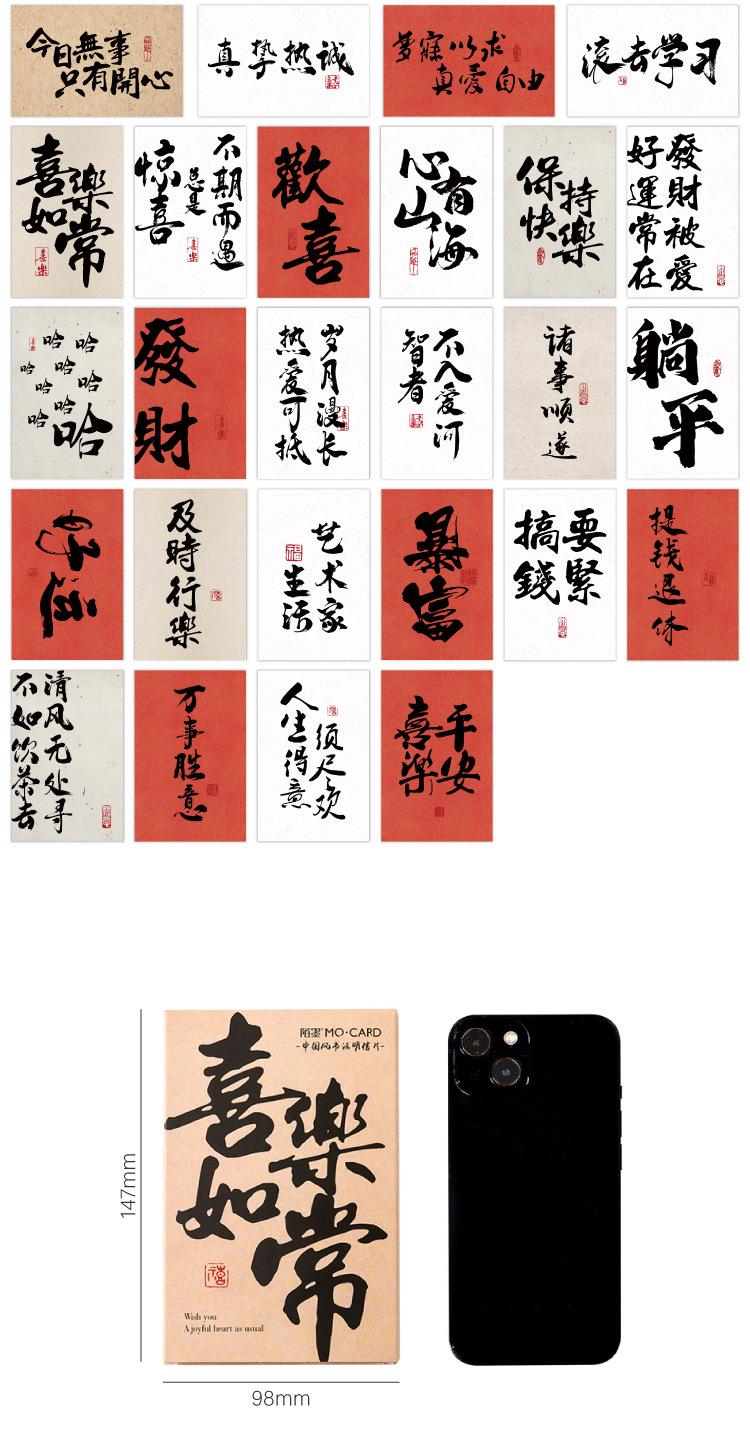 今日無事
只有開心
真挚热诚
梦寐以求
真愛自由
滚去学习
喜樂
如常
喜樂
不期而遇
总是
惊喜
喜樂
歡喜
心有
山海
保持
快樂
發財被愛
好運常在
哈哈
哈哈哈
哈哈
哈哈
發財
岁月漫长
热爱可抵
不入爱河
智者
諸事順遂
躺平
及時行樂
艺术家
生活
福
暴富
要緊
搞錢
提钱退休
清风无处寻
不如饮茶去
万事胜意
人生得意
须尽欢
平安
喜樂
陌墨 MO·CARD
-中国风书法明信片-
喜樂
如常
禧
Wish you
A joyful heart as usual
147mm
98mm